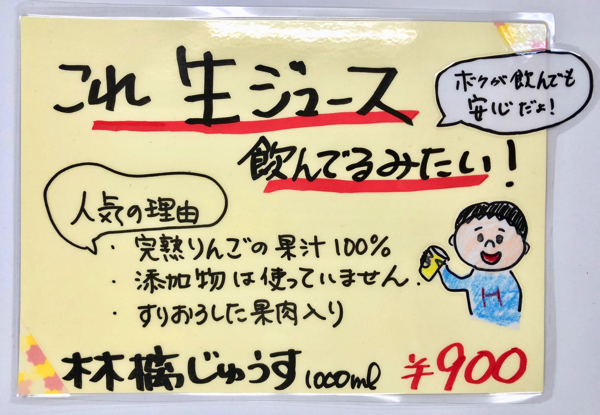 これ 生ジュース
飲んでるみたい!
ボクが飲んでも
安心だよ!
人気の理由
・完熟りんごの果汁100%
・添加物は使っていません.
・すりおろした果肉入り
H
林檎じゅうす 1000ml ¥900